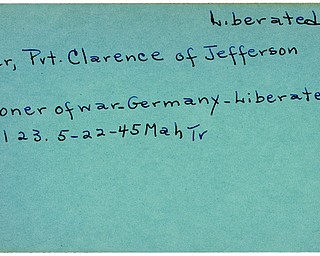 Liberated
r, Pvt. Clarence of Jefferson
oner of war-Germany-Liberate
123. 5-22-45 Mah Tr